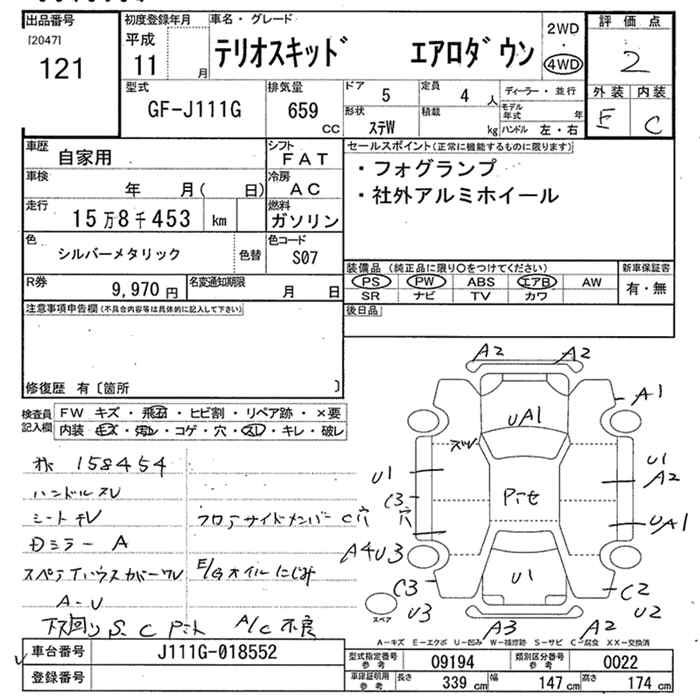 出品番号
[2047]
121
初度登録年月
平成
11 月
車名・グレード
テリオスキッド エアロダウン
2WD
・
4WD
評価点
2
外装 内装
E C
型式
GF-J111G
排気量
659 CC
ドア 5
定員 4 人
形状 ステW
積載 kg
ディーラー・並行
モデル年式 年
ハンドル 左・右
車歴
自家用
シフト
FAT
車検
年 月( 日)
冷房
AC
走行
15万8千453 km
燃料
ガソリン
色
シルバーメタリック
色替
色コード
S07
R券
9,970 円
名変通知期限
月 日
セールスポイント(正常に機能するものに限ります)
・フォグランプ
・社外アルミホイール
装備品 (純正品に限り○をつけてください)
PS PW ABS エアB AW
SR ナビ TV カワ
新車保証書
有・無
後日品
注意事項申告欄(不具合内容等は具体的に記入して下さい)
修復歴 有〔箇所 〕
検査員
記入欄
FW キズ・飛石・ヒビ割・リペア跡・×要
内装 キズ・汚レ・コゲ・穴・スレ・キレ・破レ
158454
ハンドルスレ
シート
ミラー A
フロアサイドメンバー C穴
E/Gオイルにじみ
A-U
下回り S. C
A/C 不良
A2 A2
A1
UA1
U1
U1
A2
C3
穴
UA1
A4U3
C3
U3
U1
C2
U2
A3
A2
スペア
A-キズ E-エクボ U-凹み W-補修跡 S-サビ C-腐食 XX-交換済
車台番号
J111G-018552
登録番号
型式指定番号
参考
09194
類別区分番号
参考
0022
車庫証明用
参考
長さ 339 cm
幅 147 cm
高さ 174 cm